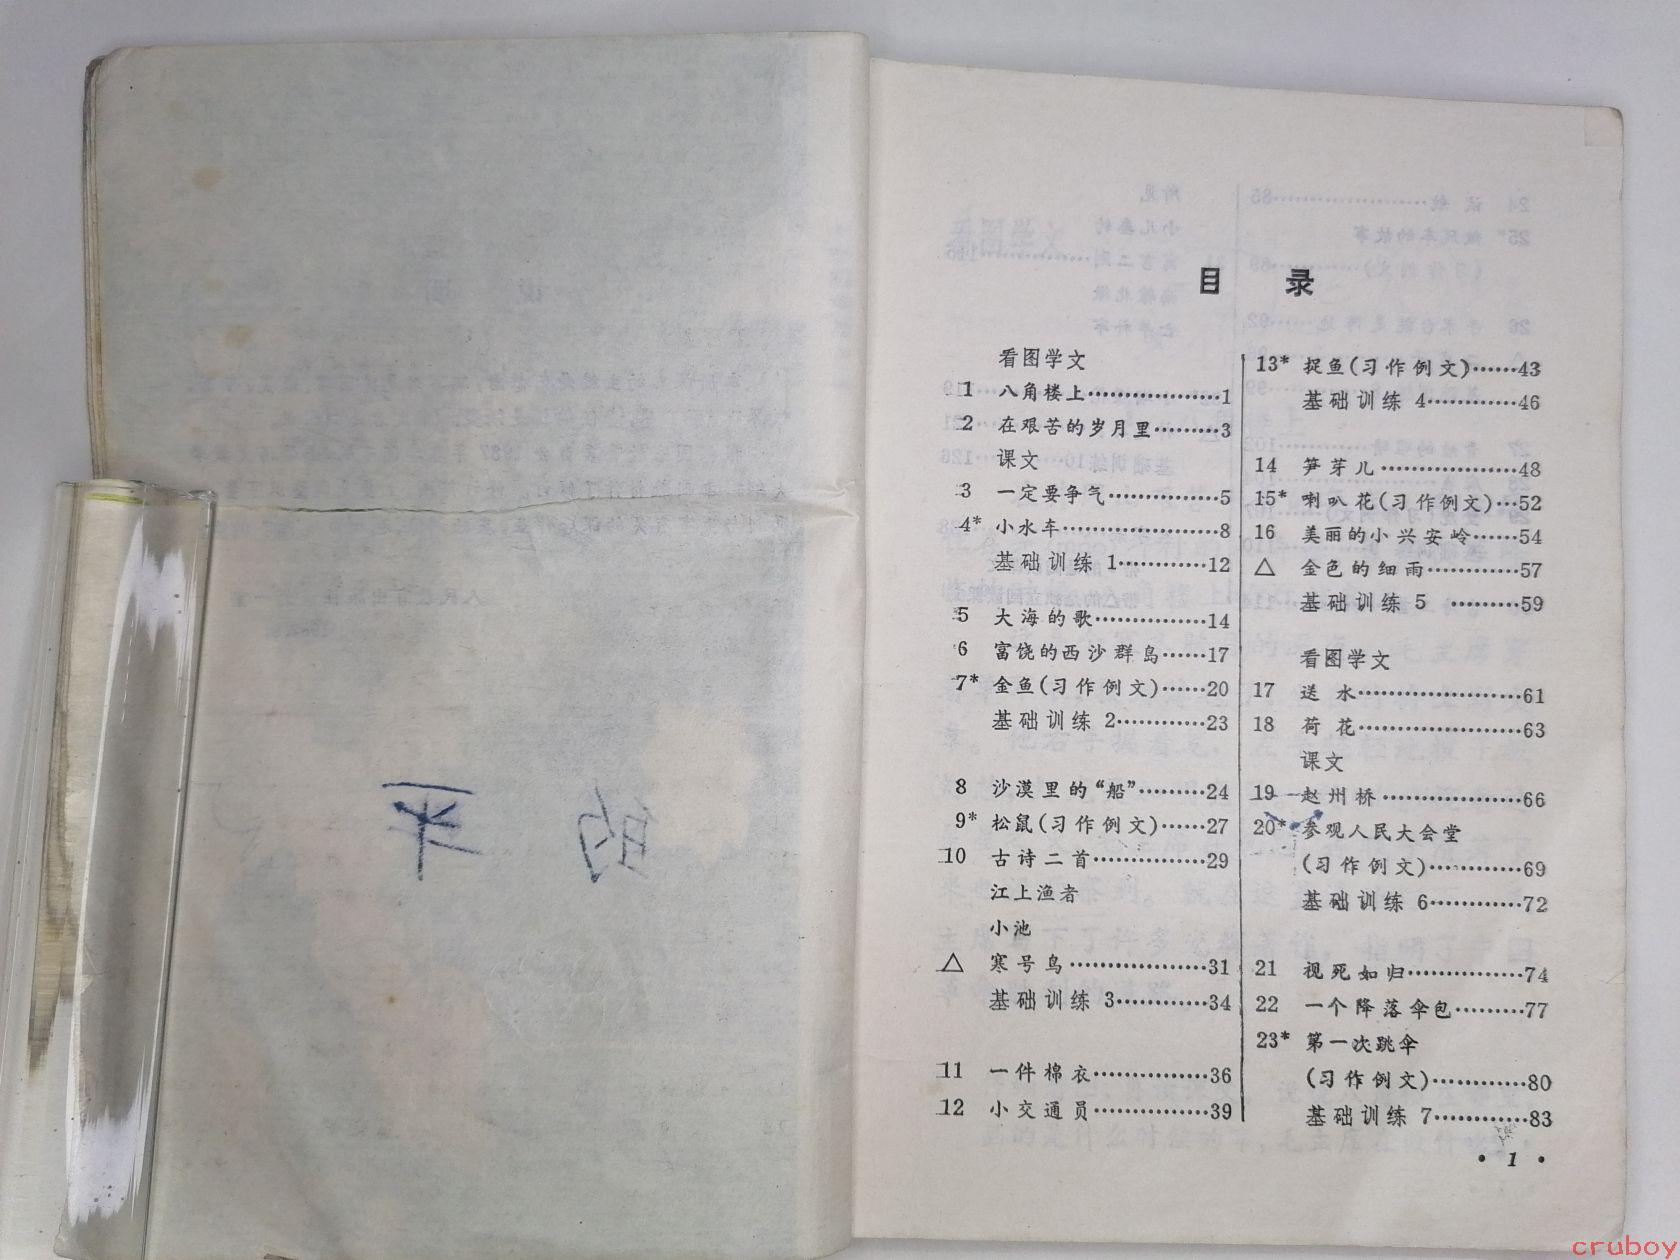 平 的
目 录
看图学文
1 八角楼上………………1
2 在艰苦的岁月里………3
课文
3 一定要争气……………5
4* 小水车…………………8
基础训练 1…………12
5 大海的歌……………14
6 富饶的西沙群岛……17
7* 金鱼(习作例文)……20
基础训练 2…………23
8 沙漠里的“船”………24
9* 松鼠(习作例文)……27
10 古诗二首……………29
江上渔者
小池
△ 寒号鸟………………31
基础训练 3…………34
11 一件棉衣……………36
12 小交通员……………39
13* 捉鱼(习作例文)……43
基础训练 4…………46
14 笋芽儿………………48
15* 喇叭花(习作例文)…52
16 美丽的小兴安岭……54
△ 金色的细雨…………57
基础训练 5 ………59
看图学文
17 送水…………………61
18 荷花…………………63
课文
19 赵州桥………………66
20* 参观人民大会堂
(习作例文)…………69
基础训练 6…………72
21 视死如归……………74
22 一个降落伞包………77
23* 第一次跳伞
(习作例文)…………80
基础训练 7…………83
· 1 ·
cruboy